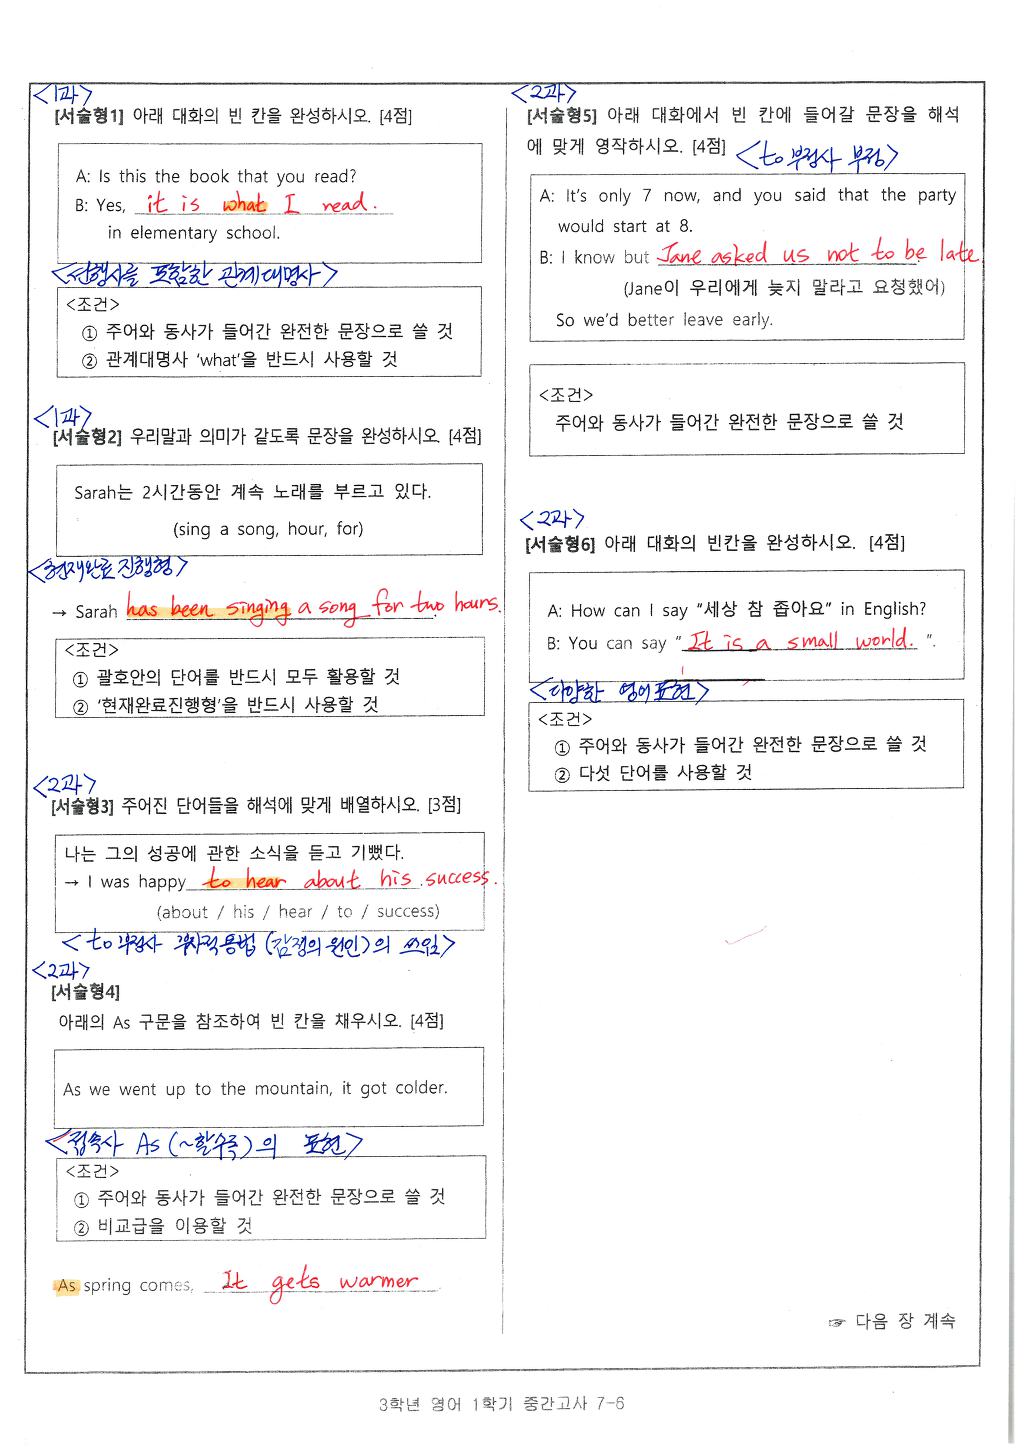 <1과>
[서술형1] 아래 대화의 빈 칸을 완성하시오. [4점]
A: Is this the book that you read?
B: Yes, it is what I read.
in elementary school.
<선행사를 포함한 관계대명사>
<조건>
① 주어와 동사가 들어간 완전한 문장으로 쓸 것
② 관계대명사 ‘what’을 반드시 사용할 것
<1과>
[서술형2] 우리말과 의미가 같도록 문장을 완성하시오. [4점]
Sarah는 2시간동안 계속 노래를 부르고 있다.
(sing a song, hour, for)
<현재완료 진행형>
→ Sarah has been singing a song for two hours.
<조건>
① 괄호안의 단어를 반드시 모두 활용할 것
② ‘현재완료진행형’을 반드시 사용할 것
<2과>
[서술형3] 주어진 단어들을 해석에 맞게 배열하시오. [3점]
나는 그의 성공에 관한 소식을 듣고 기뻤다.
→ I was happy to hear about his success.
(about / his / hear / to / success)
<to 부정사 부사적용법 (감정의 원인)의 쓰임>
<2과>
[서술형4]
아래의 As 구문을 참조하여 빈 칸을 채우시오. [4점]
As we went up to the mountain, it got colder.
<접속사 As (~할수록)의 표현>
<조건>
① 주어와 동사가 들어간 완전한 문장으로 쓸 것
② 비교급을 이용할 것
As spring comes, It gets warmer
<2과>
[서술형5] 아래 대화에서 빈 칸에 들어갈 문장을 해석
에 맞게 영작하시오. [4점] <to 부정사 부정>
A: It’s only 7 now, and you said that the party
would start at 8.
B: I know but Jane asked us not to be late
(Jane이 우리에게 늦지 말라고 요청했어)
So we’d better leave early.
<조건>
주어와 동사가 들어간 완전한 문장으로 쓸 것
<2과>
[서술형6] 아래 대화의 빈칸을 완성하시오. [4점]
A: How can I say “세상 참 좁아요” in English?
B: You can say “ It is a small world. ”.
<다양한 영어 표현>
<조건>
① 주어와 동사가 들어간 완전한 문장으로 쓸 것
② 다섯 단어를 사용할 것
☞ 다음 장 계속
3학년 영어 1학기 중간고사 7-6